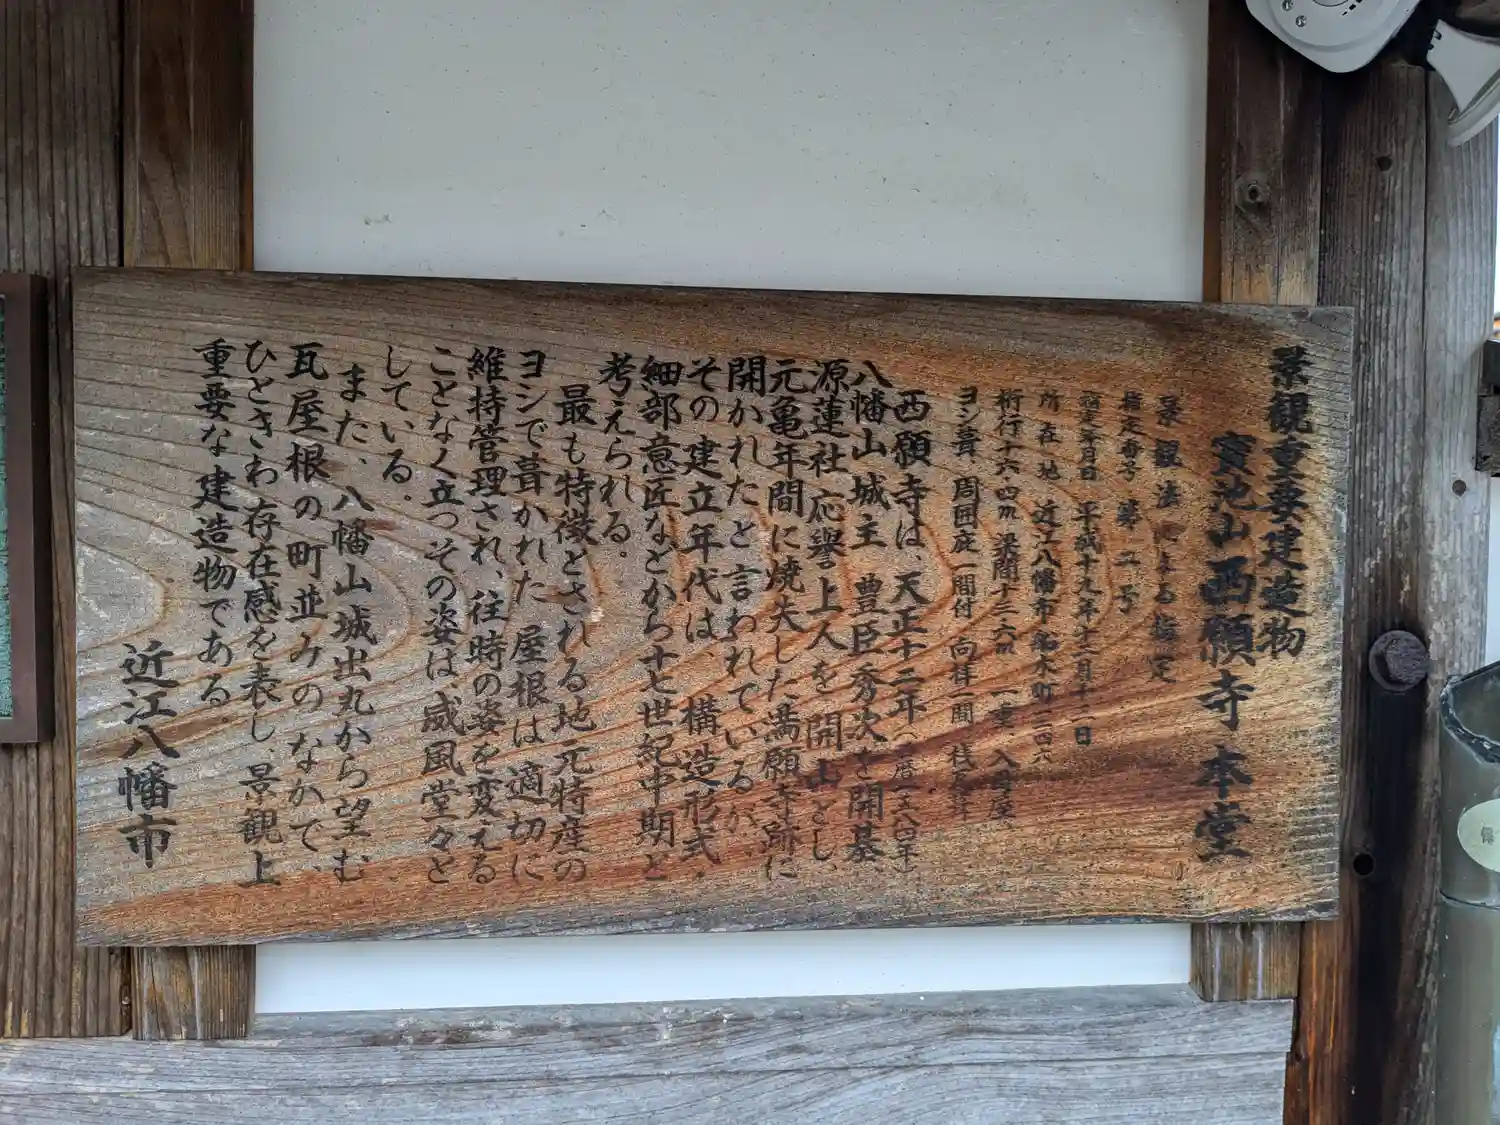 景観重要建造物
寳池山西願寺本堂
景観法による指定
指定番号 第二号
指定年月日 平成十九年十二月十二日
所在地 近江八幡市船木町三四六
桁行十六・四m 梁間十三・六m 一重、入母屋、
ヨシ葺、周囲庇一間付 向拝一間、桟瓦葺
西願寺は、天正十二年(西暦一五八四年)
八幡山城主 豊臣秀次を開基、
源蓮社応誉上人を 開山とし、
元亀年間に焼失した髙願寺跡に
開かれたと言われているが、
その 建立年代は 構造形式・
細部意匠などから十七世紀中期と
考えられる。
最も特徴とされる地元特産の
ヨシで葺かれた 屋根は 適切に
維持管理され、往時の姿を変える
ことなく立つその姿は、威風堂々と
している。
また、八幡山城出丸から望む
瓦屋根の町並みのなかで、
ひときわ存在感を表し、景観上
重要な建造物である
近江八幡市